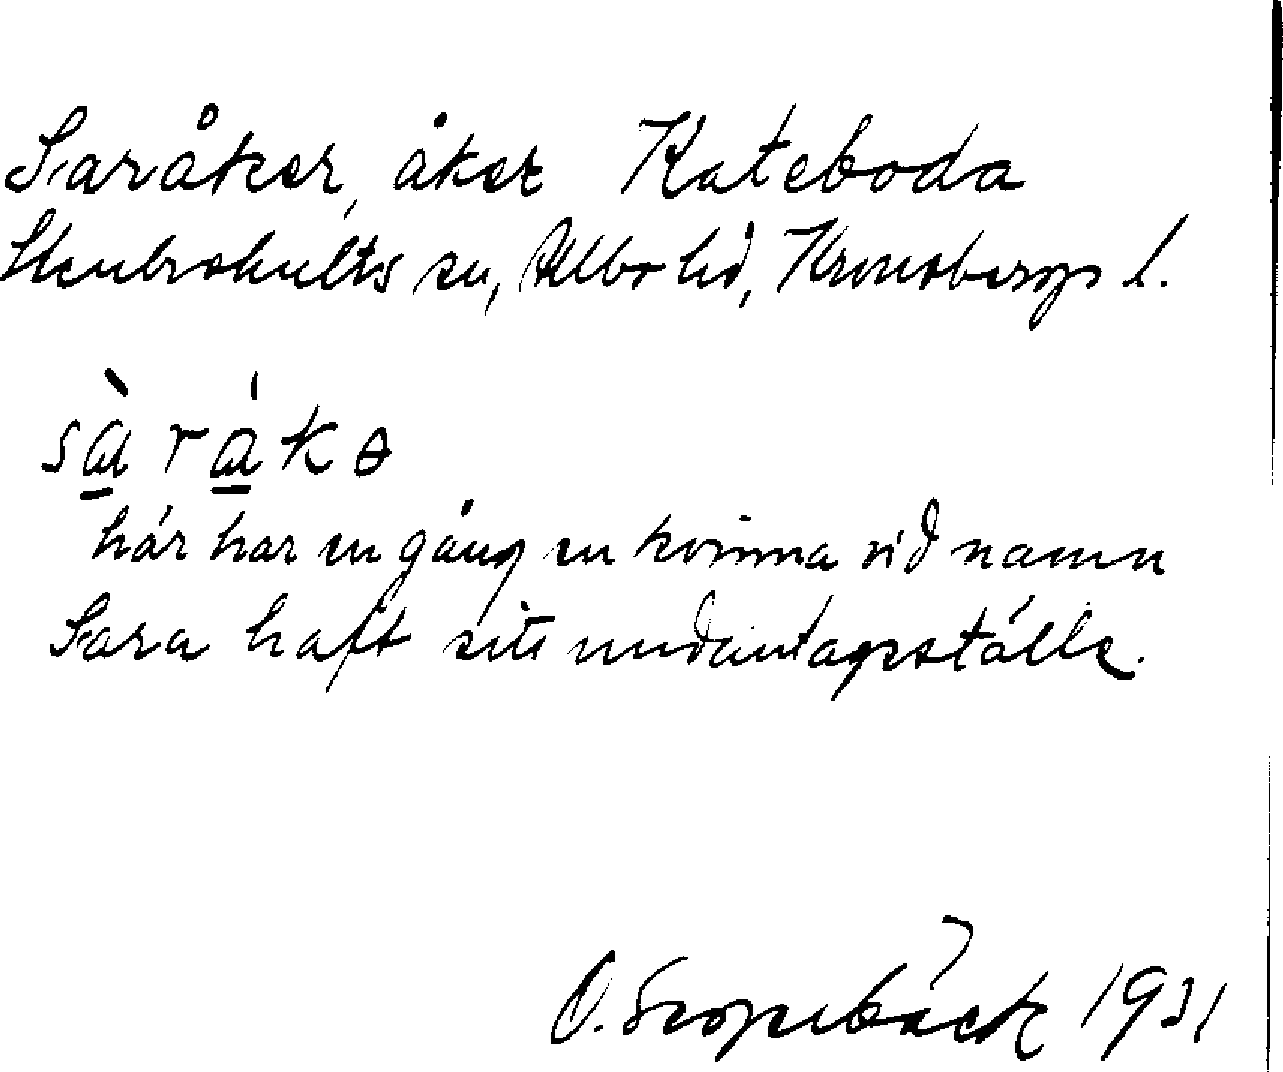 Saråker, åker Kateboda
Stenbrohults sn, Allbo hd, Kronobergs l.
sàrákə
här har en gång en kvinna vid namn
Sara haft sitt undantagsställe.
O. 1931